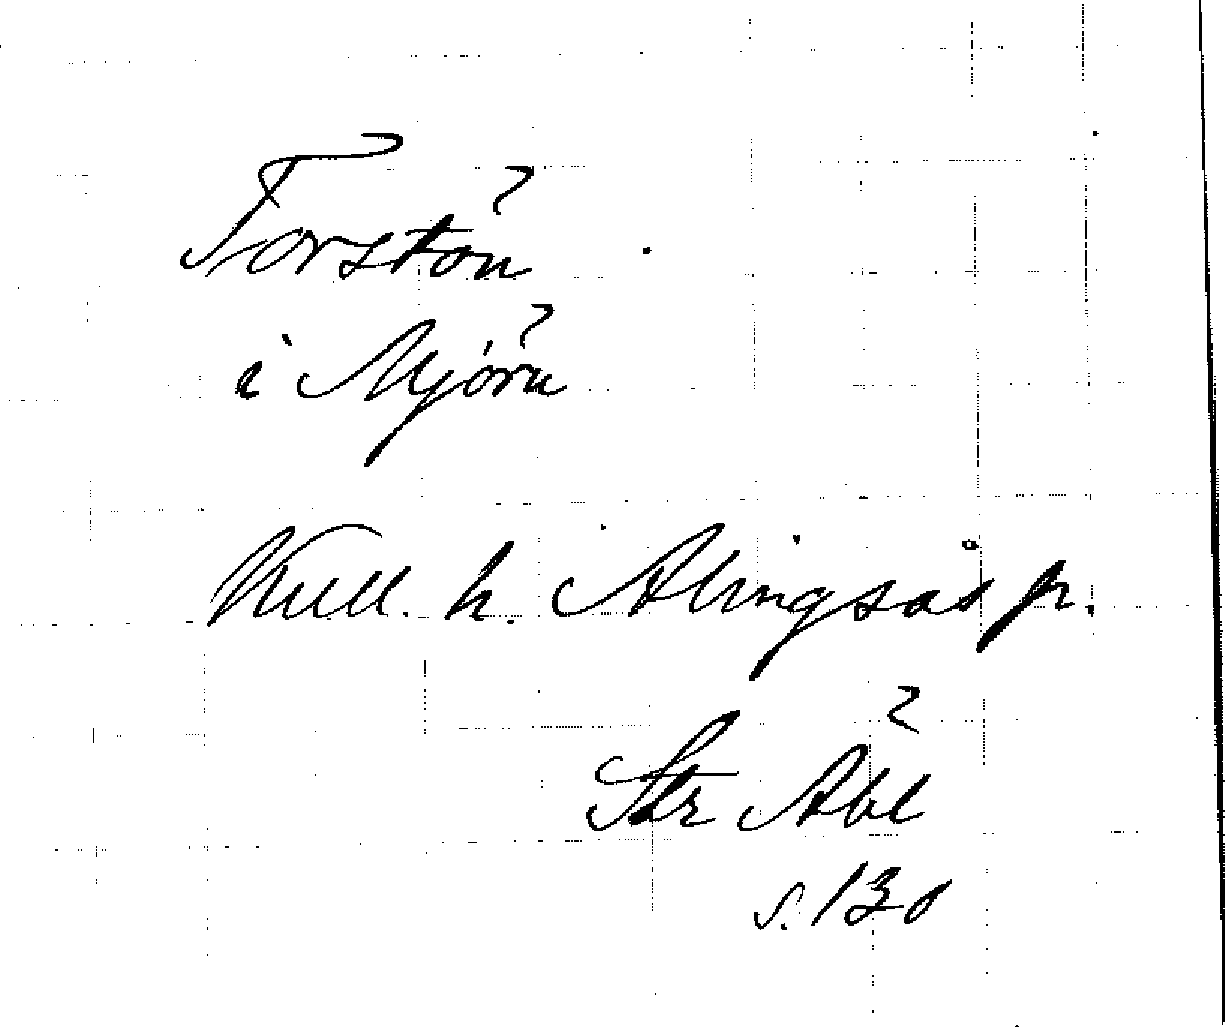 Torsön
i Mjörn
Kull. h. Alingsås fr.
Str Abl
s. 130